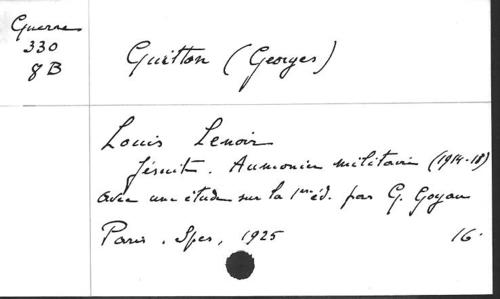 Guerre
330
8 B
Guitton (Georges)
Louis Lenoir
Jésuit. Aumonier militaire (1914-18)
avec une étude sur la 1re éd. par G. Goyau
Paris. Spes, 1925 16°